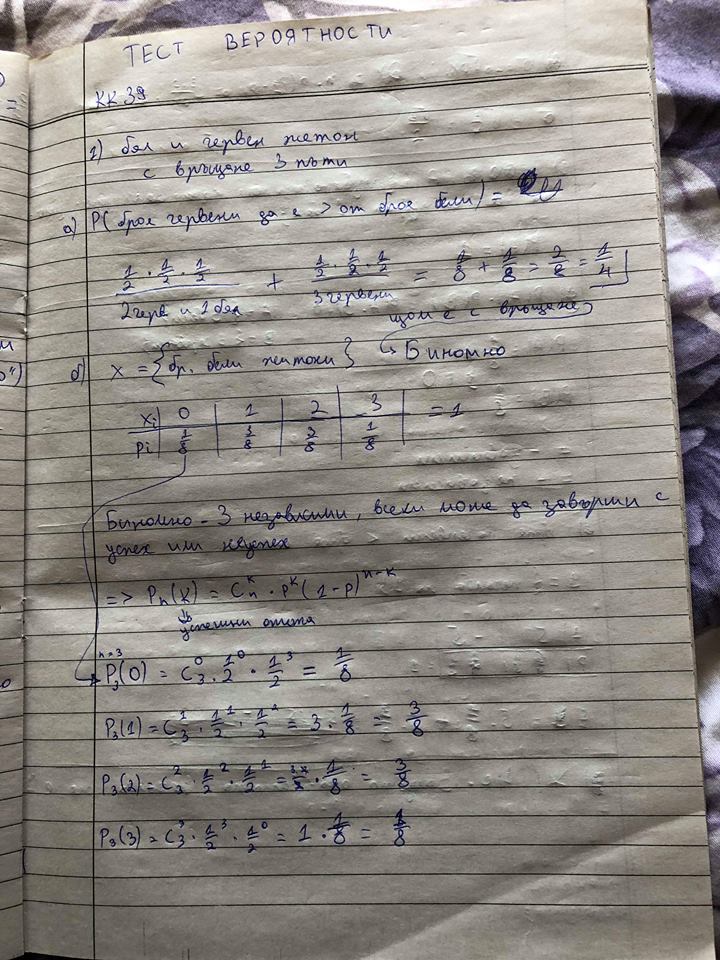 ТЕСТ ВЕРОЯТНОСТИ
КК-39
1) бял и червен жетон
с връщане 3 пъти
а) P(броя червени да е > от броя бели) =
1/2 · 1/2 · 1/2 + 1/2 · 1/2 · 1/2 = 1/8 + 1/8 = 2/8 = 1/4
2 черв и 1 бял 3 червени
щом е с връщане
б) X = {бр. бели жетони} → Биномно
xi | 0 | 1 | 2 | 3 | = 1
pi | 1/8 | 3/8 | 3/8 | 1/8
Биномно - 3 независими, всеки може да завърши с
успех или неуспех
=> Pn(k) = Cn^k · p^k (1-p)^n-k
успешни опита
n=3
P3(0) = C3^0 · 1/2^0 · 1/2^3 = 1/8
P3(1) = C3^1 · 1/2^1 · 1/2^2 = 3 · 1/8 = 3/8
P3(2) = C3^2 · 1/2^2 · 1/2^1 = · 1/8 = 3/8
P3(3) = C3^3 · 1/2^3 · 1/2^0 = 1 · 1/8 = 1/8